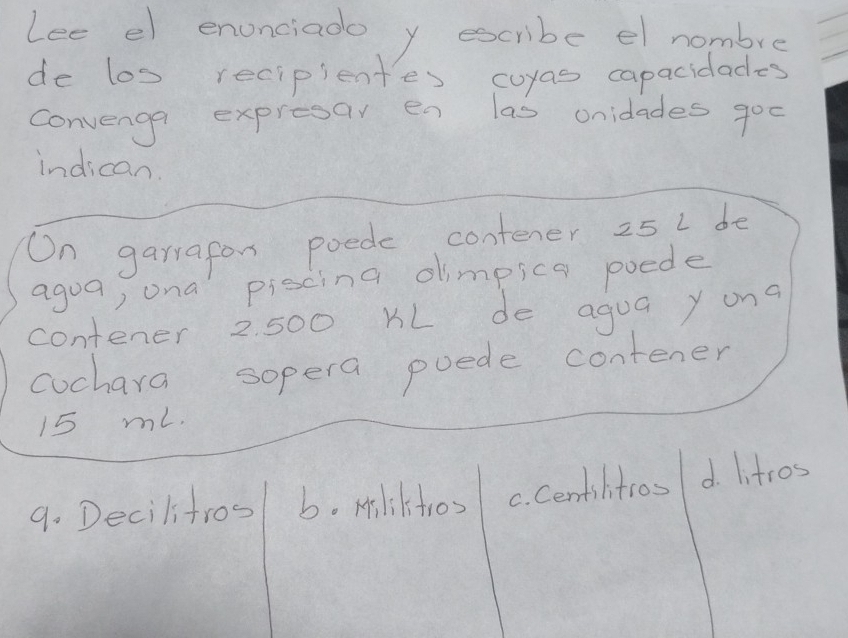 Lee el enunciado y escribe el nombre
de los recipientes cuyas capacidades
convenga expresar en las unidades que
indican.
Un garrafon puede contener 25 L de
agua, una piscina olimpica puede
contener 2.500 KL de agua y una
cuchara sopera puede contener
15 mL.
a. Decilitros b. Mililitros c. Centilitros d. litros